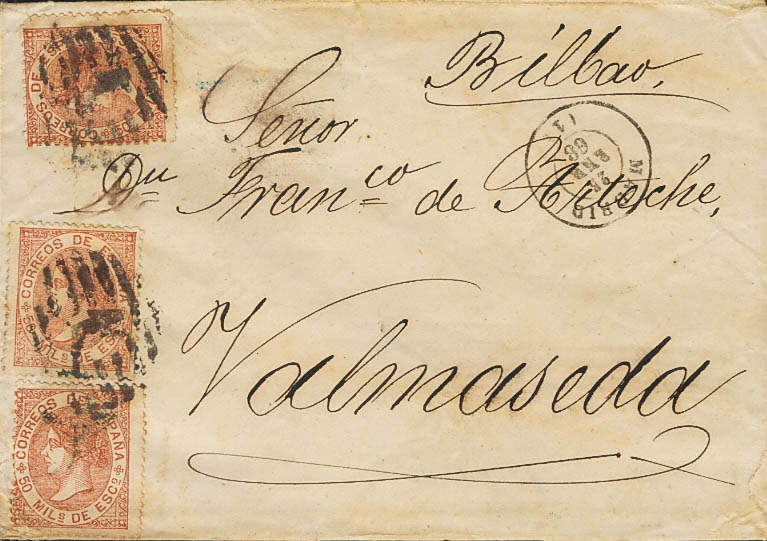 Bilbao,
Señor
Dn Fran.co de Arteche,
Valmaseda
MADRID
ENE
(1)
CORREOS DE ESPAÑA
50 MILs DE ESCo
CORREOS DE ESPAÑA
50 MILs DE ESCo
CORREOS DE ESPAÑA
50 MILs DE ESCo